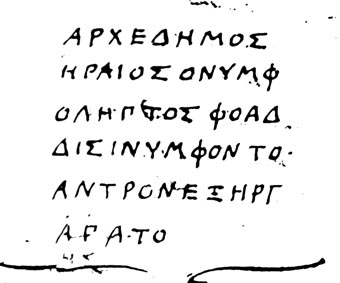 ΑΡΧΕΔΗΜΟΣ
ΗΡΑΙΟΣ ΟΝΥΜΦ
ΟΛΗΠΤΟΣ ΦΟΑΔ
ΔΙΣΙΝΥΜΦΟΝ ΤΟ
ΑΝΤΡΟΝΕΞΗΡΓ
ΑΓΑΤΟ